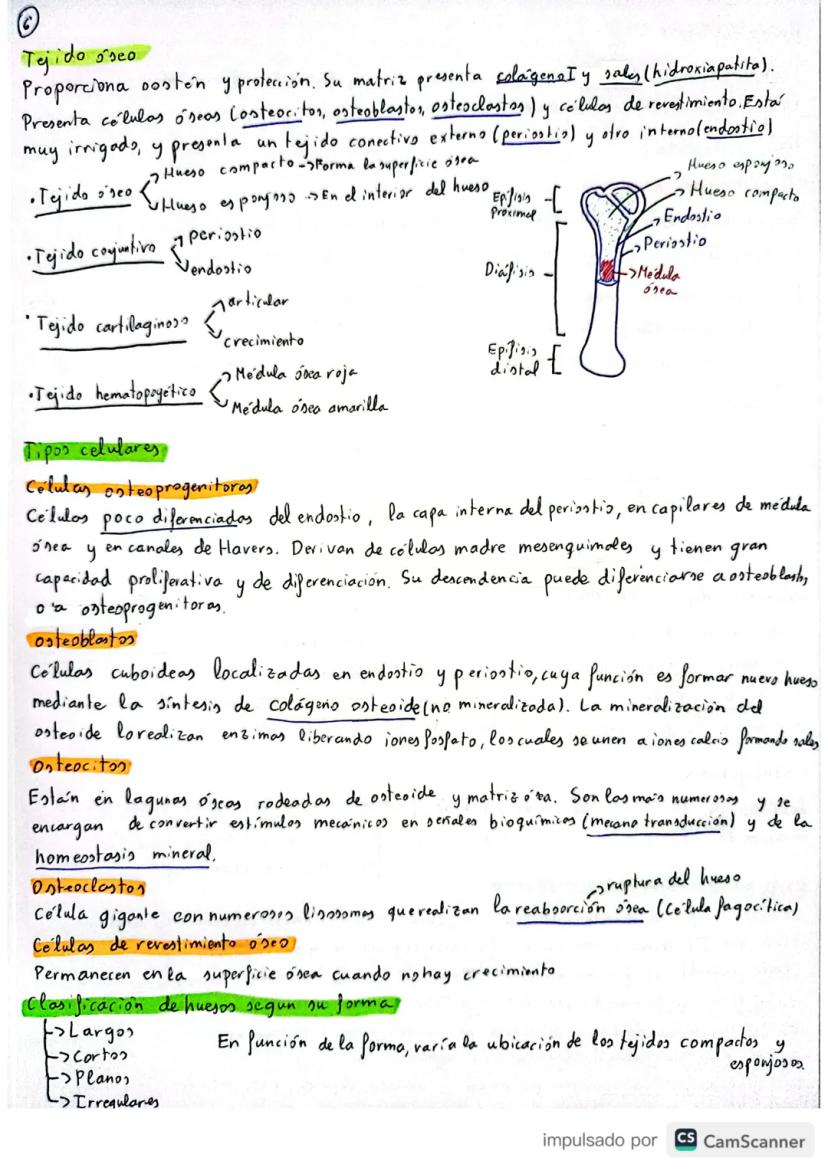 6
Tejido óseo
Proporciona sostén y protección. Su matriz presenta colágeno I y sales (hidroxiapatita).
Presenta células óseas (osteocitos, osteoblastos, osteoclastos) y células de revestimiento. Está
muy irrigado, y presenta un tejido conectivo externo (periostio) y otro interno (endostio)
• Tejido óseo
Hueso compacto → Forma la superficie ósea
Hueso esponjoso → En el interior del hueso
• Tejido conjuntivo
periostio
endostio
• Tejido cartilaginoso
articular
crecimiento
• Tejido hematopoyético
Médula ósea roja
Médula ósea amarilla
Epífisis
proximal
Diáfisis
Epífisis
distal
Hueso esponjoso
Hueso compacto
Endostio
Periostio
Médula
ósea
Tipos celulares
Células osteoprogenitoras
Células poco diferenciadas del endostio, la capa interna del periostio, en capilares de médula
ósea y en canales de Havers. Derivan de células madre mesenquimales y tienen gran
capacidad proliferativa y de diferenciación. Su descendencia puede diferenciarse a osteoblastos,
o a osteoprogenitoras.
osteoblastos
Células cuboideas localizadas en endostio y periostio, cuya función es formar nuevo hueso
mediante la síntesis de colágeno osteoide (no mineralizada). La mineralización del
osteoide lo realizan enzimas liberando iones fosfato, los cuales se unen a iones calcio formando sales
Osteocitos
Están en lagunas óseas rodeadas de osteoide y matriz ósea. Son las más numerosas y se
encargan de convertir estímulos mecánicos en señales bioquímicas (mecano transducción) y de la
homeostasis mineral.
Osteoclastos
→ ruptura del hueso
Célula gigante con numerosos lisosomas que realizan la reabsorción ósea (Célula fagocítica)
Células de revestimiento óseo
Permanecen en la superficie ósea cuando no hay crecimiento
Clasificación de huesos segun su forma
→ Largos
→ Cortos
→ Planos
→ Irregulares
En función de la forma, varía la ubicación de los tejidos compactos y
esponjosos.
impulsado por CS CamScanner